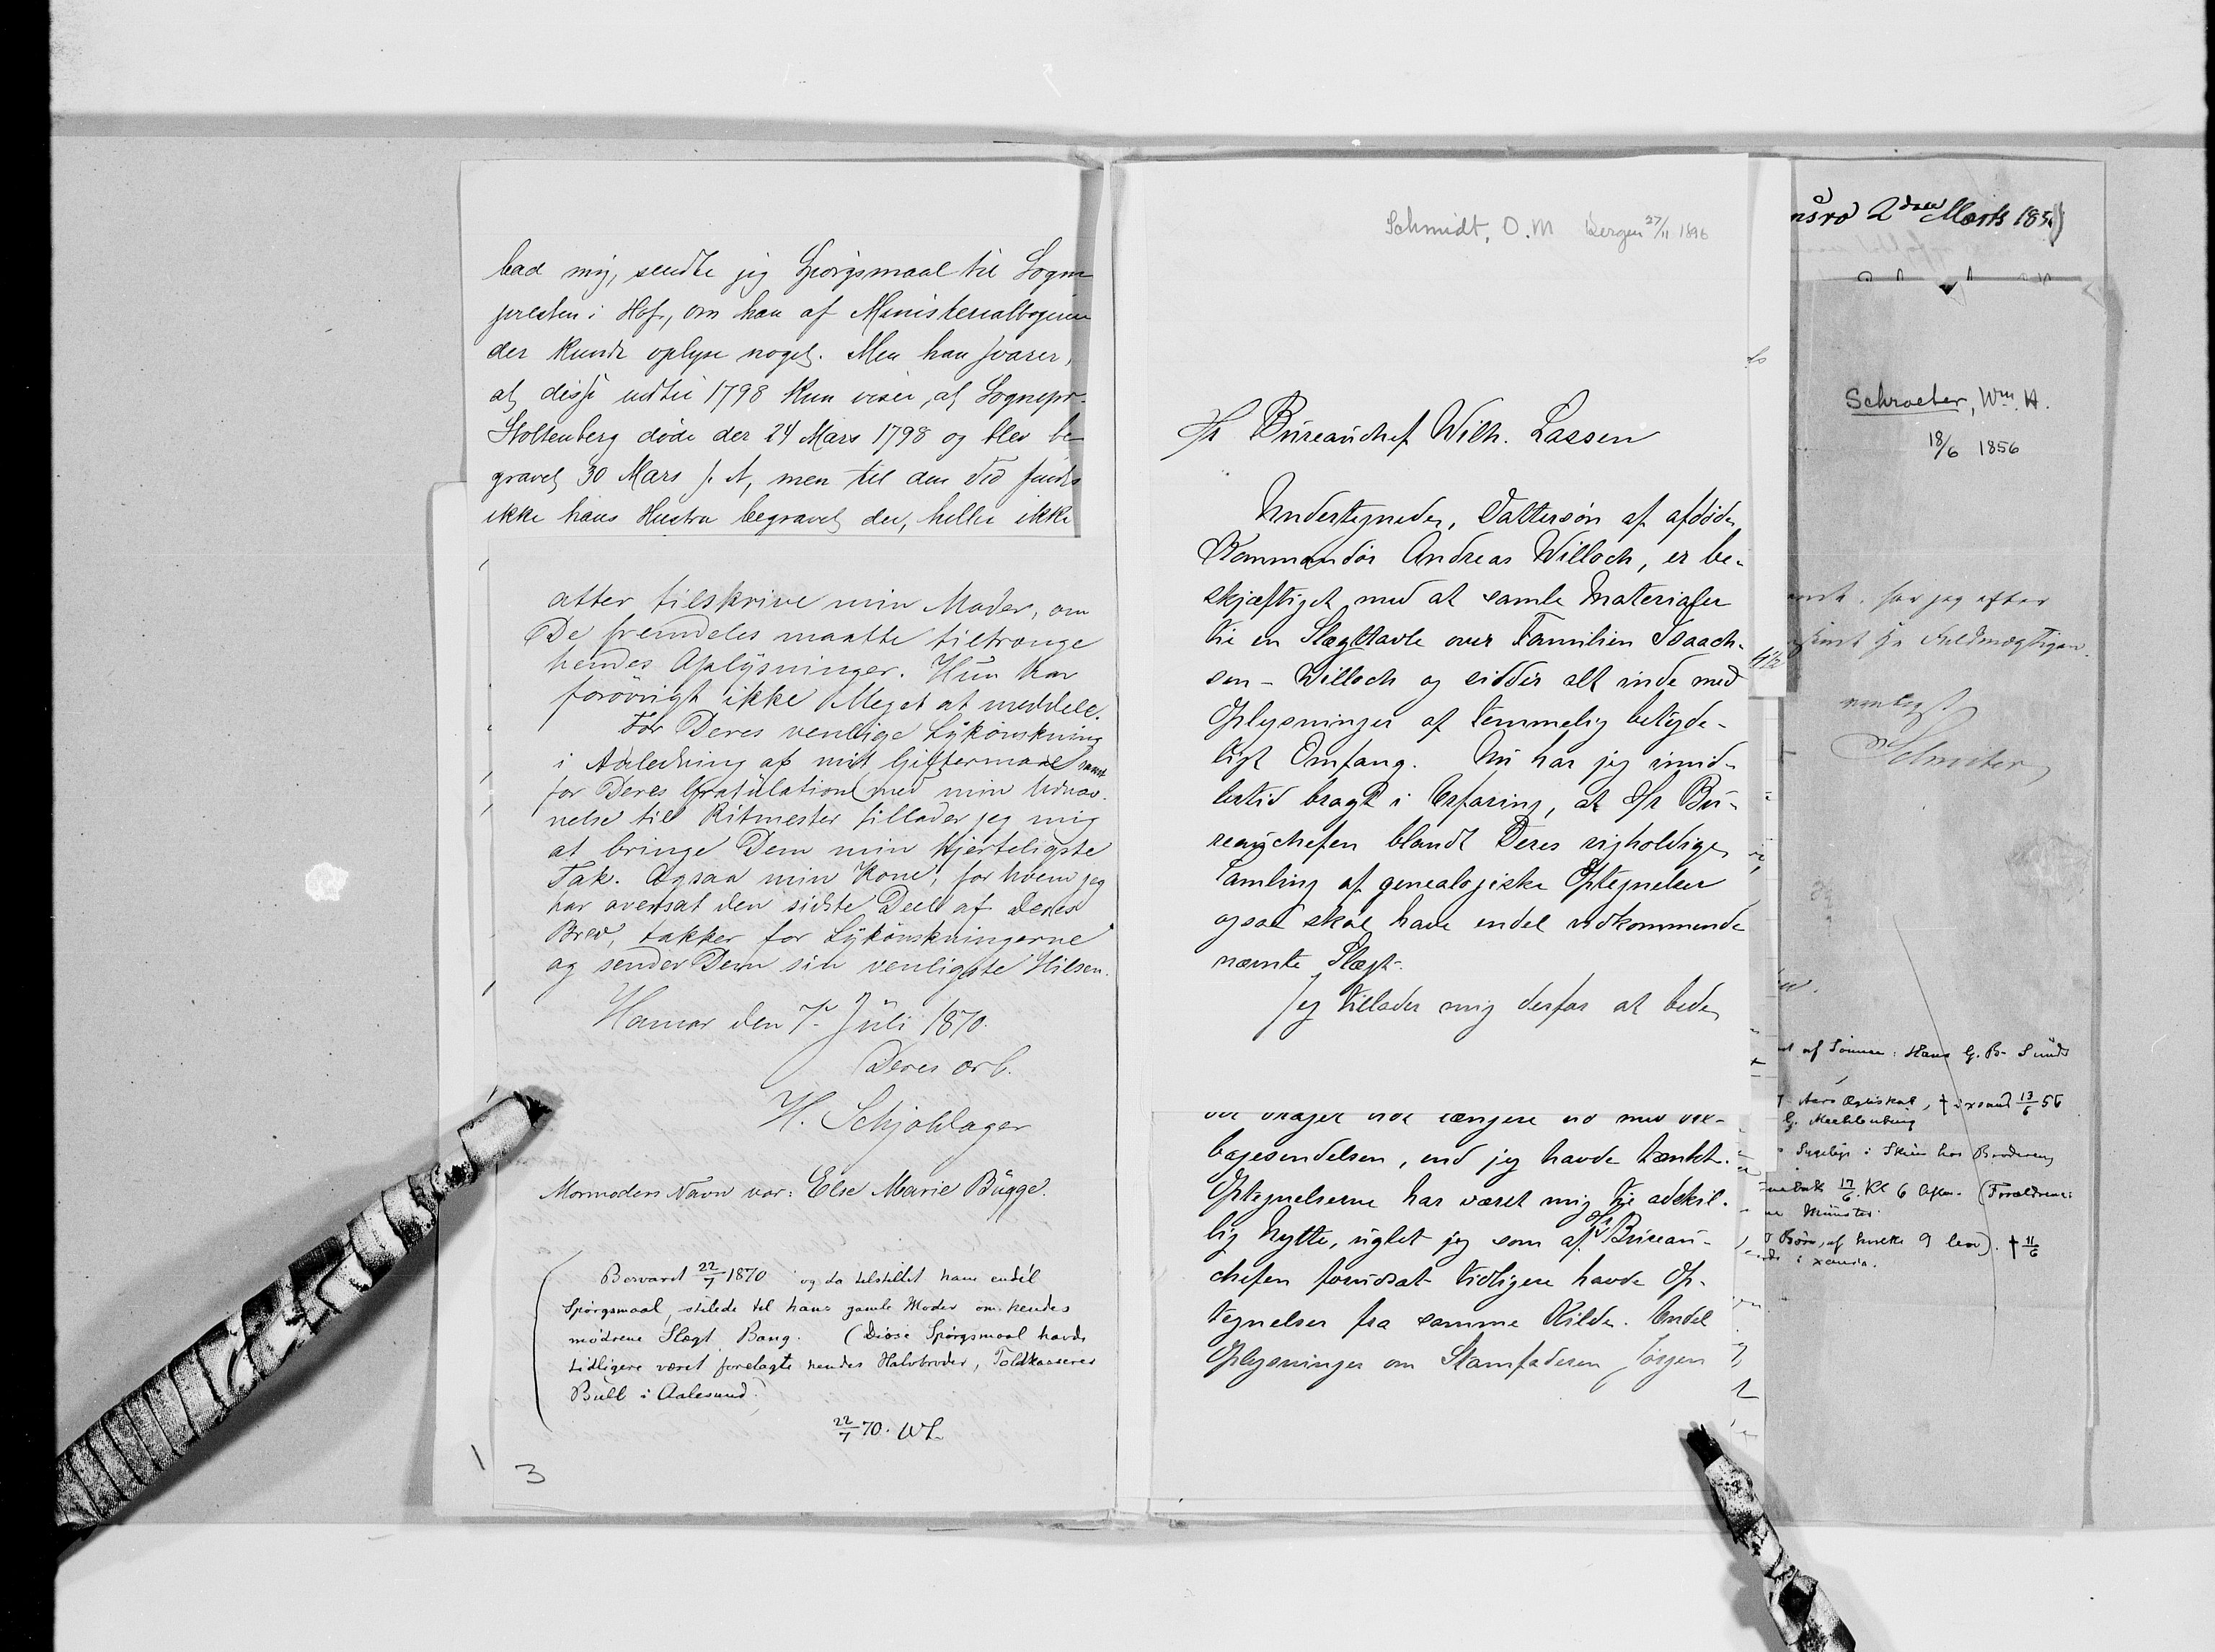 bad mig, sendte jeg Spörgsmaal til Sogne
presten i Hof, om han af Ministerialbogerne
der kunde oplyse noget. Men han svarer,
at disse indtil 1798 kun viser, at Sognepr.
Stoltenberg döde der 24 Mars 1798 og blev be
gravet 30 Mars s. A, men til den Tid findes
ikke hans Hustru begravet der, heller ikke
atter tilskrive min Moder, om
De fremdeles maatte tiltrænge
hendes Oplysninger. Hun har
forövrigt ikke Meget at meddele.
For Deres venlige Lykönskning
i Anledning af mit Giftermaal samt
for Deres Gratulation med min Udnæv-
nelse til Ritmester tillader jeg mig
at bringe Dem min hjerteligste
Tak. Ogsaa min Kone, for hvem jeg
har oversat den sidste Deel af Deres
Brev, takker for Lykönskningerne
og sender Dem sin venligste Hilsen.
Hamar den 7. Juli 1870.
Deres erb.
H. Schjöhlager
Mormoders Navn var: Else Marie Bügge.
Besvaret 22/7 1870 og da tilstillet ham endel
Spörgsmaal, stilede til hans gamle Moder om hendes
mödrene Slægt Bang. (Disse Spörgsmaal havde
tidligere været forelagte hendes Halvbroder, Toldkasserer
Bull i Aalesund.
22/7 70. WL.
3
Schmidt, O. M Bergen 27/11 1896
Hr Bureauchef Wilh. Lassen
Undertegnede, Dattersön af afdöde
Kommandör Andreas Willoch, er be-
skjæftiget med at samle Materialer
til en Slægttavle over Familien Isaach-
sen - Willoch og sidder alt inde med
Oplysninger af temmelig betyde-
ligt Omfang. Nu har jeg imid-
lertid bragt i Erfaring, at Hr Bu-
reauchefen blandt Deres righoldige
Samling af genealogiske Optegnelser
ogsaa skal have endel vedkommende
nævnte Slægt.
Jeg tillader mig derfor at bede
længere ud med til-
bagesendelsen, end jeg havde tænkt.
Optegnelserne har været mig til adskil-
lig Nytte, uagtet jeg som af Hr Bureau-
chefen forudsat tidligere havde Op-
tegnelser fra samme Kilde. Endel
Oplysninger om Stamfaderen Jörgen
2den Marts 185
Schroeter, Wm. H.
18/6 1856
har jeg efter
Fuldmægtigen.
Schroeter
af Sönnen: Hans G. B. Sundt
13/6 56
G. Mecklenburg
Sygeleje i Skien hos Broderen
17/6. Kl 6 Aften. (Forældrene:
Münster
Börn, af hvilke 9 leve). † 11/6